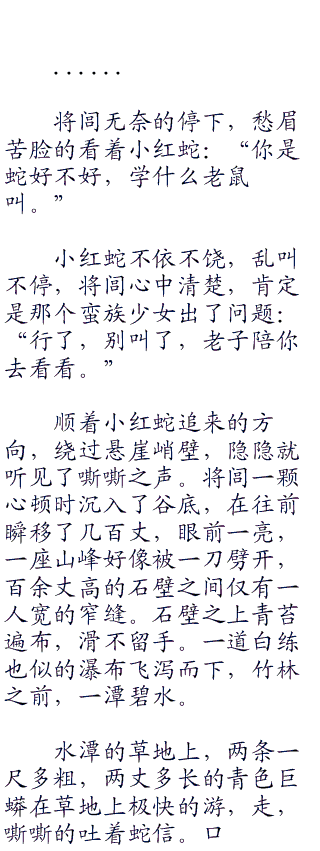 ······
将闾无奈的停下，愁眉
苦脸的看着小红蛇：“你是
蛇好不好，学什么老鼠
叫。”
小红蛇不依不饶，乱叫
不停，将闾心中清楚，肯定
是那个蛮族少女出了问题：
“行了，别叫了，老子陪你
去看看。”
顺着小红蛇追来的方
向，绕过悬崖峭壁，隐隐就
听见了嘶嘶之声。将闾一颗
心顿时沉入了谷底，在往前
瞬移了几百丈，眼前一亮，
一座山峰好像被一刀劈开，
百余丈高的石壁之间仅有一
人宽的窄缝。石壁之上青苔
遍布，滑不留手。一道白练
也似的瀑布飞泻而下，竹林
之前，一潭碧水。
水潭的草地上，两条一
尺多粗，两丈多长的青色巨
蟒在草地上极快的游，走，
嘶嘶的吐着蛇信。口